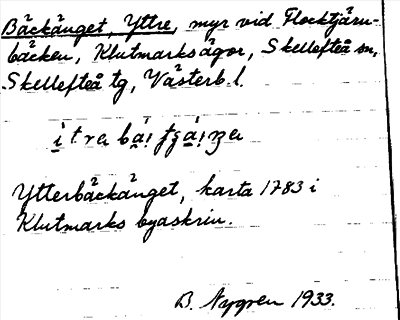 Bäckänget, Yttre, myr vid Flocktjärn-
bäcken, Klutmarksågor, Skellefteå sn,
Skellefteå tg, Västerb. l.
Ytterbäckänget, karta 1783 i
Klutmarks byaskrin.
B. Nygren 1933.